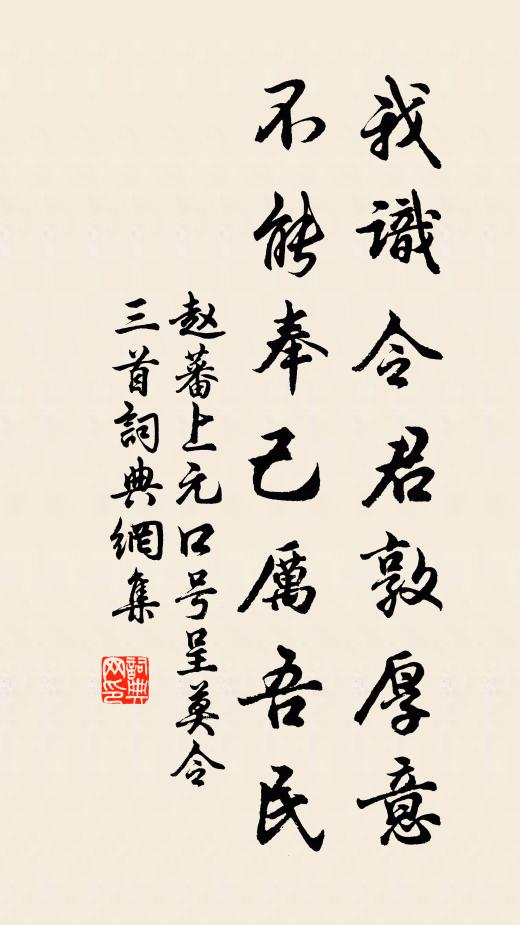 我識令君敦厚意
不能奉己厲吾民
赵蕃上元口号呈莫令
三首詞典網集
詞典
网印